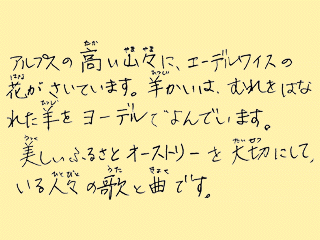 アルプスの高い山々に、エーデルワイスの
花がさいています。羊かいは、むれをはな
れた羊をヨーデルでよんでいます。
美しいふるさとオーストリーを大切にして、
いる人々の歌と曲です。